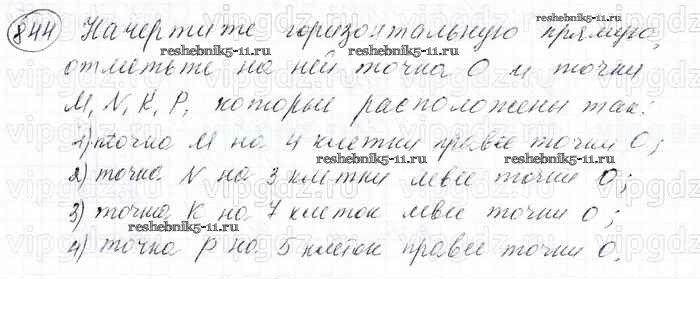 844 Начертите горизонтальную прямую,
reshebnik5-11.ru reshebnik5-11.ru
отметьте на ней точка O и точки
M, N, K, P, которые расположены так:
1) точка M на 4 клетки правее точки O;
reshebnik5-11.ru
2) точка N на 3 клетки левее точки O;
3) точка K на 7 клеток левее точки O;
reshebnik5-11.ru
4) точка P на 5 клеток правее точки O.